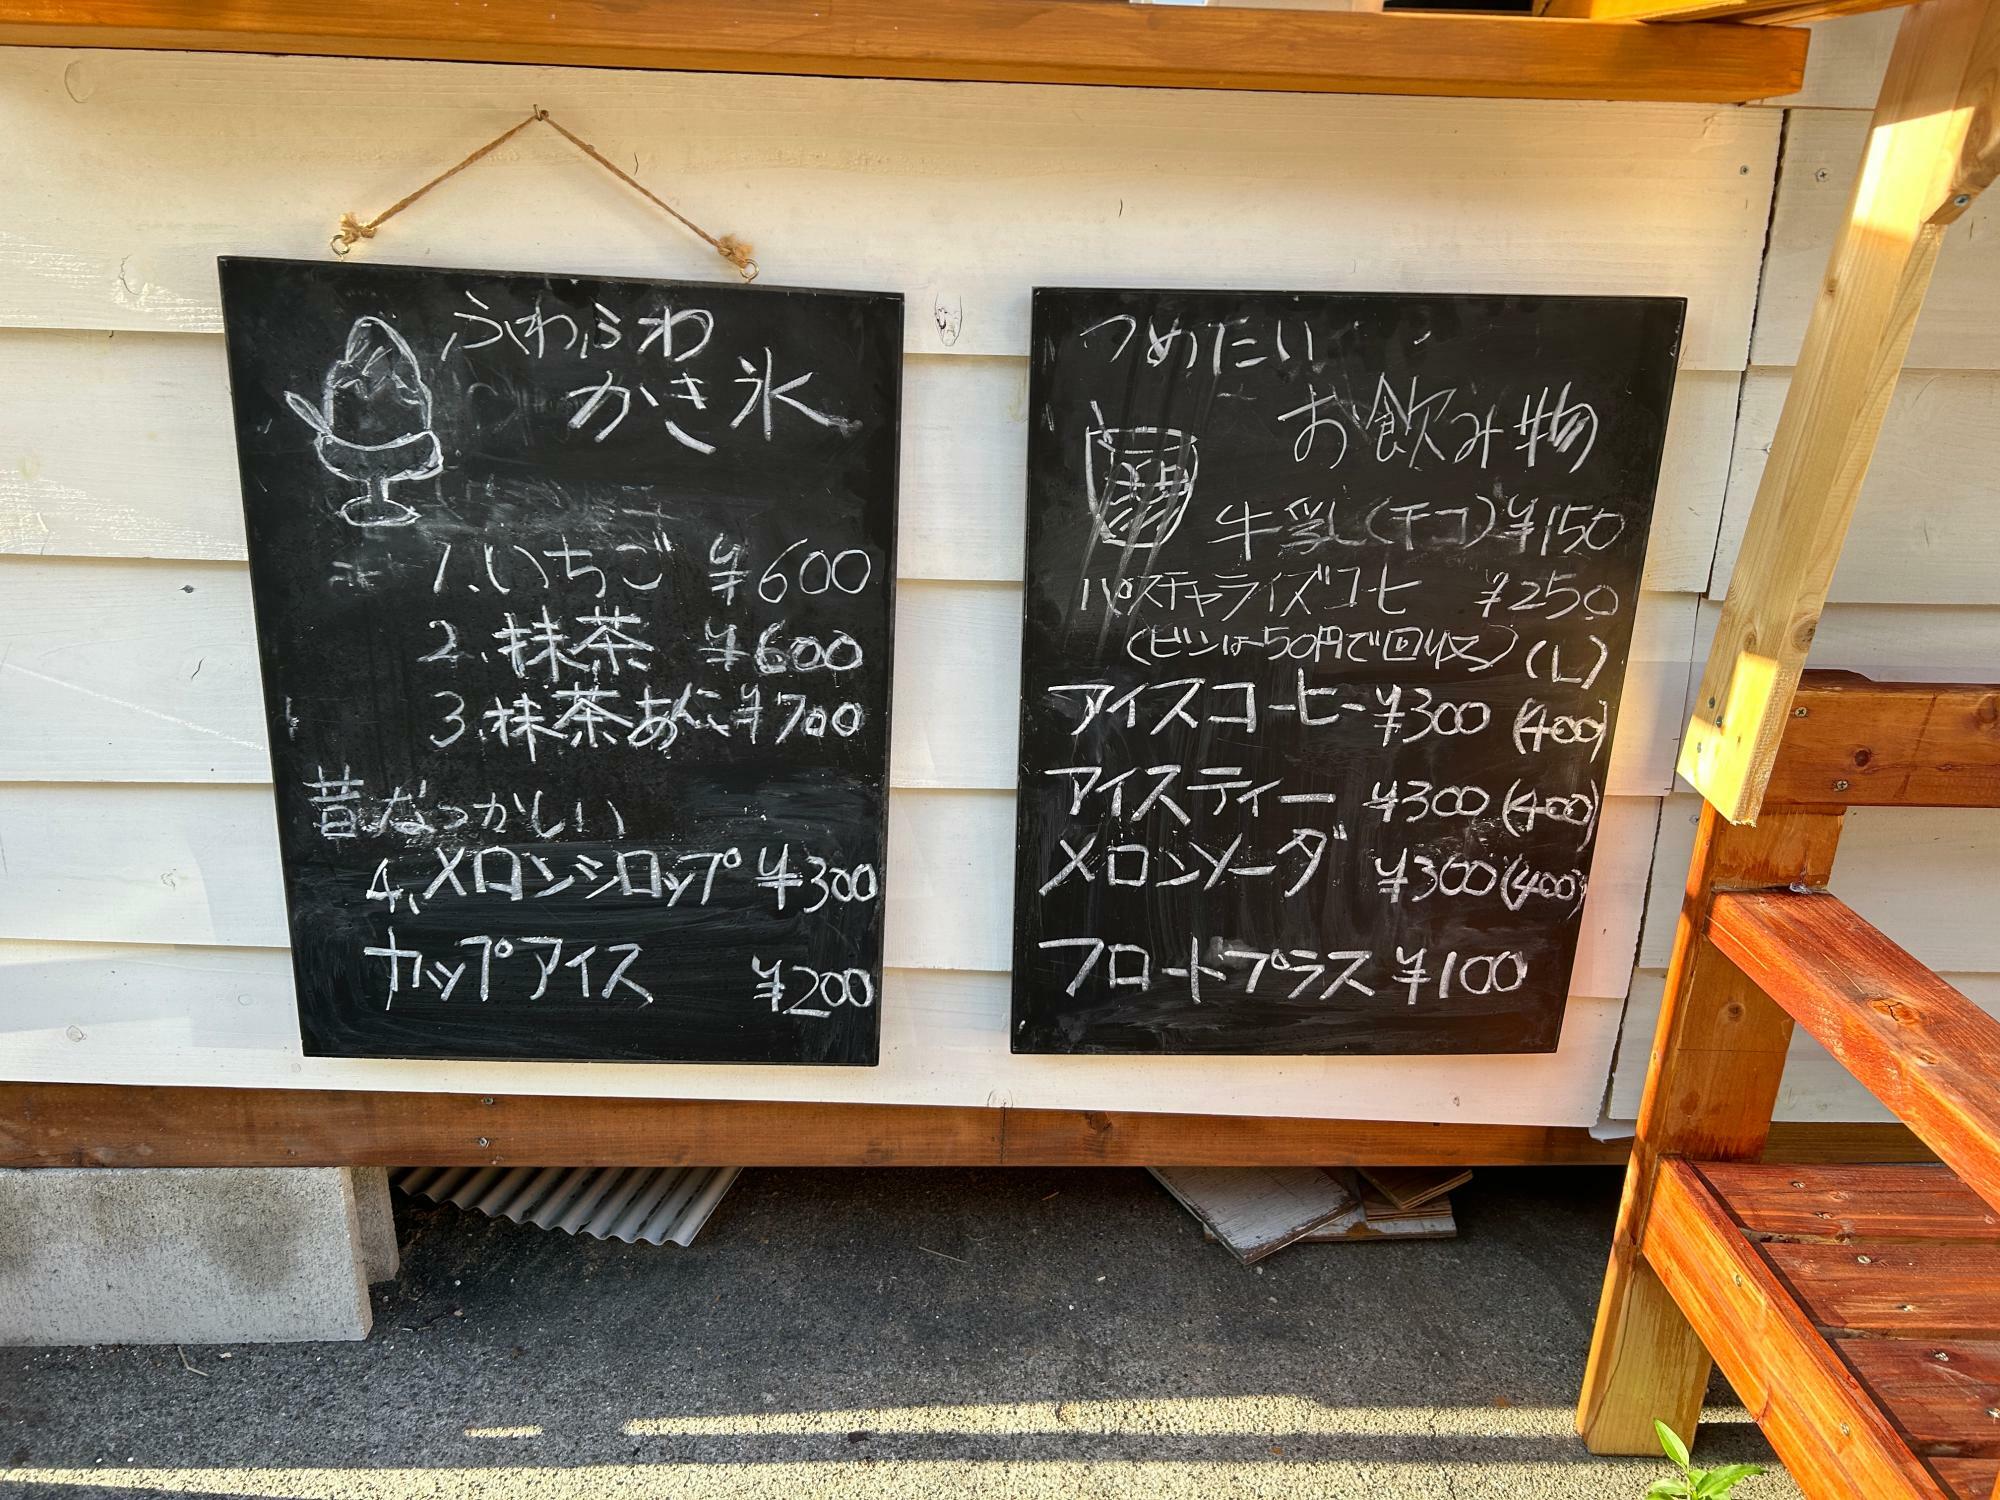 ふわふわ
かき氷
1. いちご ¥600
2. 抹茶 ¥600
3. 抹茶あんこ ¥700
昔なつかしい
4. メロンシロップ ¥300
カップアイス ¥200
つめたい
お飲み物
牛乳(チコ) ¥150
パスチャライズコヒ ¥250
(ビンは50円で回収) (L)
アイスコーヒー ¥300 (400)
アイスティー ¥300 (400)
メロンソーダ ¥300 (400)
フロートプラス ¥100